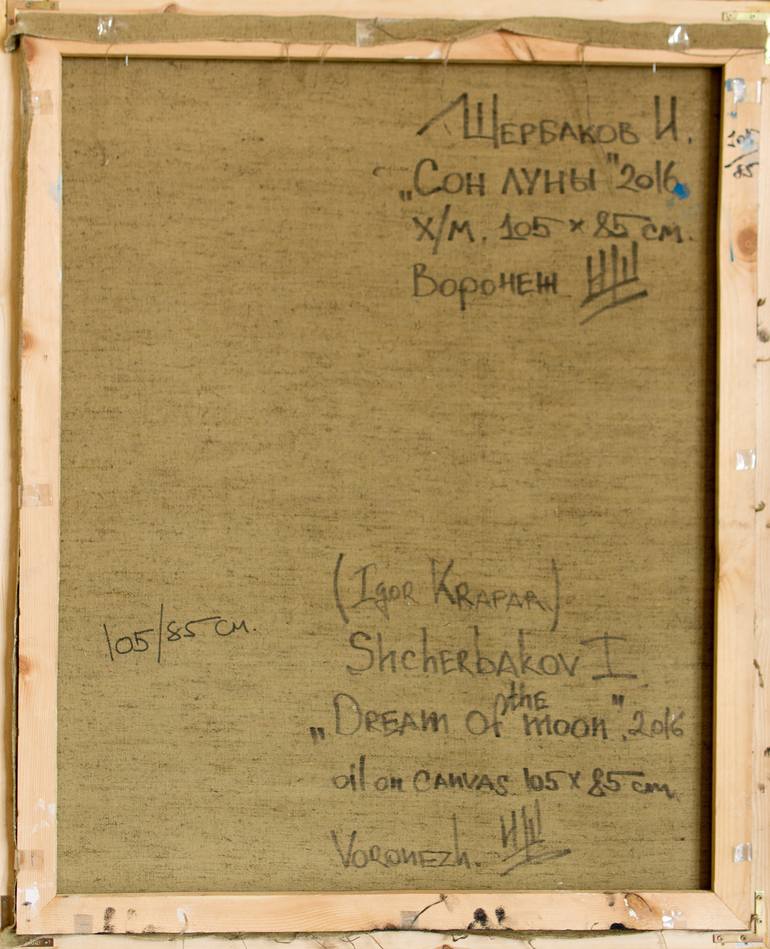 Щербаков И.
„Сон луны" 2016
х/м. 105 × 85 см.
Воронеж
85/135
(Igor Krapar)
105/85 см.
Shcherbakov I
the
„Dream of moon". 2016
oil on canvas. 105 x 85 cm.
Voronezh.